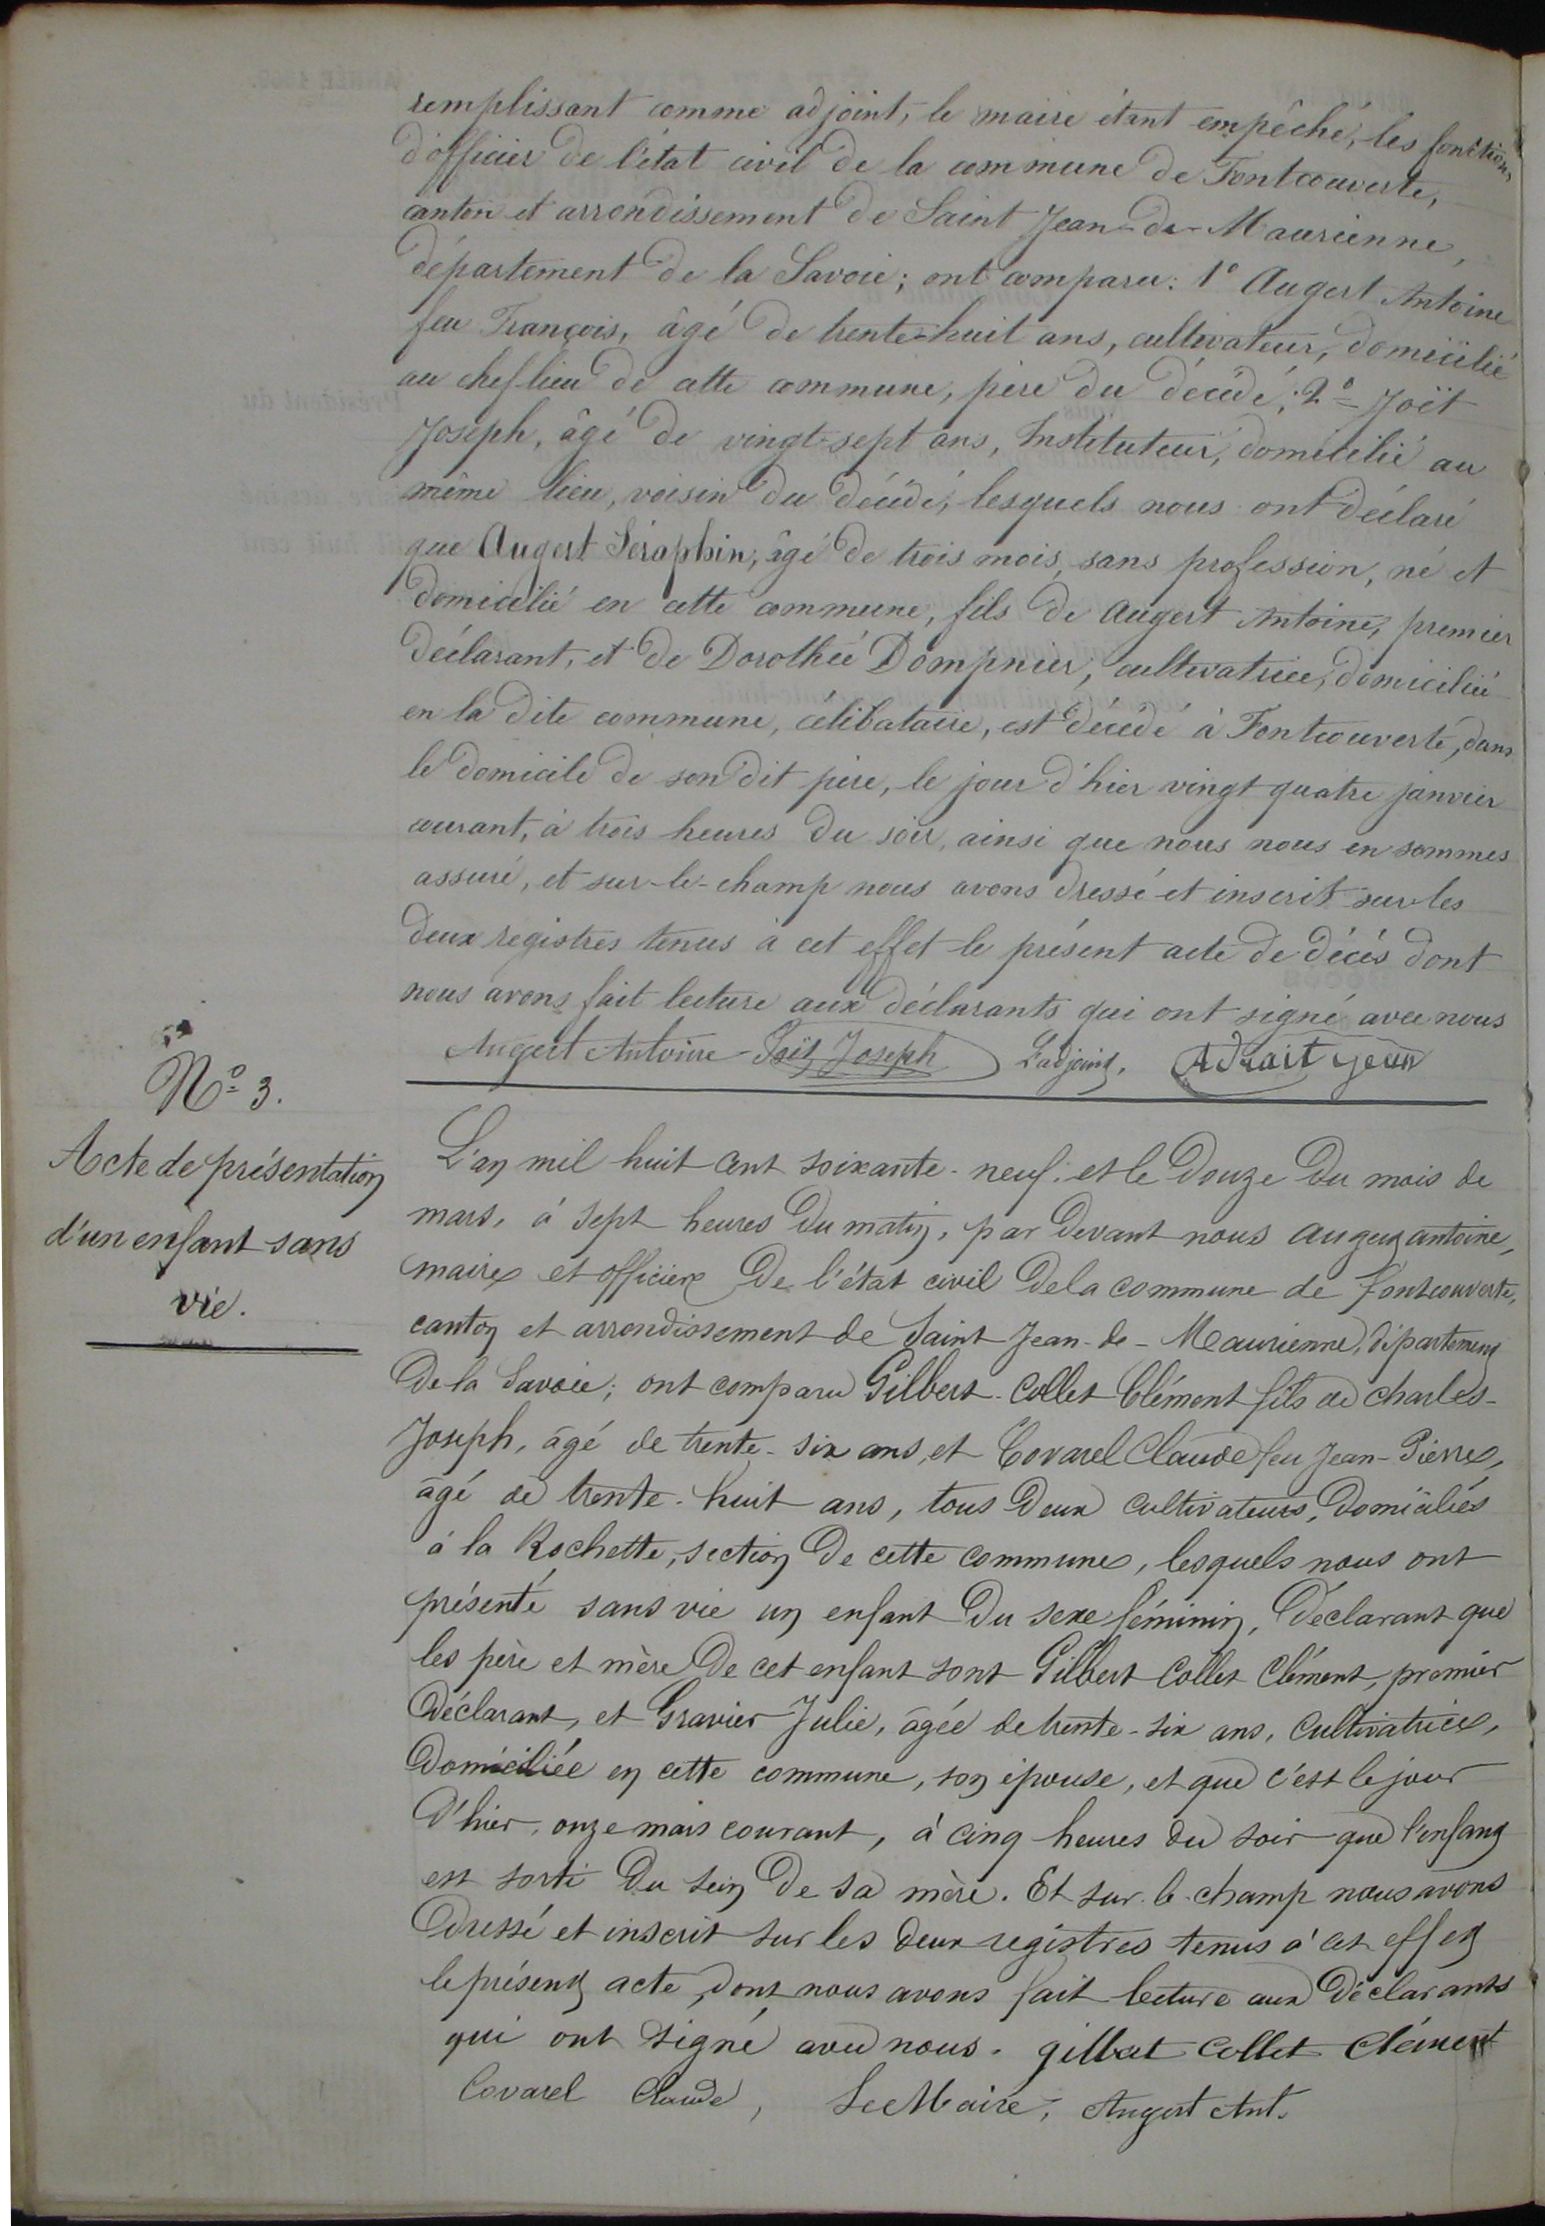 remplissant comme adjoint, le maire étant empêché, les fonctions
d'officier de l'état civil de la commune de Fontcouverte,
canton et arrondissement de Saint Jean-de-Maurienne,
département de la Savoie; ont comparu: 1° Augert Antoine
feu François, âgé de trente-huit ans, cultivateur, domicilié
au chef lieu de cette commune, père du décédé; 2° Joët
Joseph, âgé de vingt-sept ans, Instituteur, domicilié au
même lieu, voisin du décédé, lesquels nous ont déclaré
que Augert Séraphin, âgé de trois mois, sans profession, né et
domicilié en cette commune, fils de Augert Antoine, premier
déclarant, et de Dorothée Dompnier, cultivatrice, domiciliée
en la dite commune, célibataire, est décédé à Fontcouverte, dans
le domicile de son dit père, le jour d'hier vingt quatre janvier
courant, à trois heures du soir, ainsi que nous nous en sommes
assuré, et sur-le-champ nous avons dressé et inscrit sur les
deux registres tenus à cet effet le présent acte de décès dont
nous avons fait lecture aux déclarants qui ont signé avec nous
Augert Antoine Joët Joseph L'adjoint, Adrait Jean
N° 3.
Acte de présentation
d'un enfant sans
vie.
L'an mil huit cent soixante-neuf. et le douze du mois de
mars, à sept heures du matin, par devant nous augert antoine,
maire et officier de l'état civil de la commune de fontcouverte,
canton et arrondissement de Saint Jean-de-Maurienne, département
de la Savoie; ont comparu Gilbert-Collet Clément fils de charles-
Joseph, âgé de trente-six ans, et Covarel Claude feu Jean-Pierre,
âgé de trente-huit ans, tous deux cultivateurs, domiciliés
à la Rochette, section de cette commune, lesquels nous ont
présenté sans vie un enfant du sexe féminin, déclarant que
les père et mère de cet enfant sont Gilbert Collet Clément, premier
déclarant, et Gravier Julie, âgée de trente-six ans, cultivatrice,
domiciliée en cette commune, son épouse, et que c'est le jour
d'hier, onze mars courant, à cinq heures du soir que l'enfant
est sorti du sein de sa mère. Et sur-le-champ nous avons
dressé et inscrit sur les deux registres tenus à cet effet
le présent acte, dont nous avons fait lecture aux déclarants
qui ont signé avec nous. gilbert Collet Clément
Covarel Claude, Le Maire, Augert Ant.